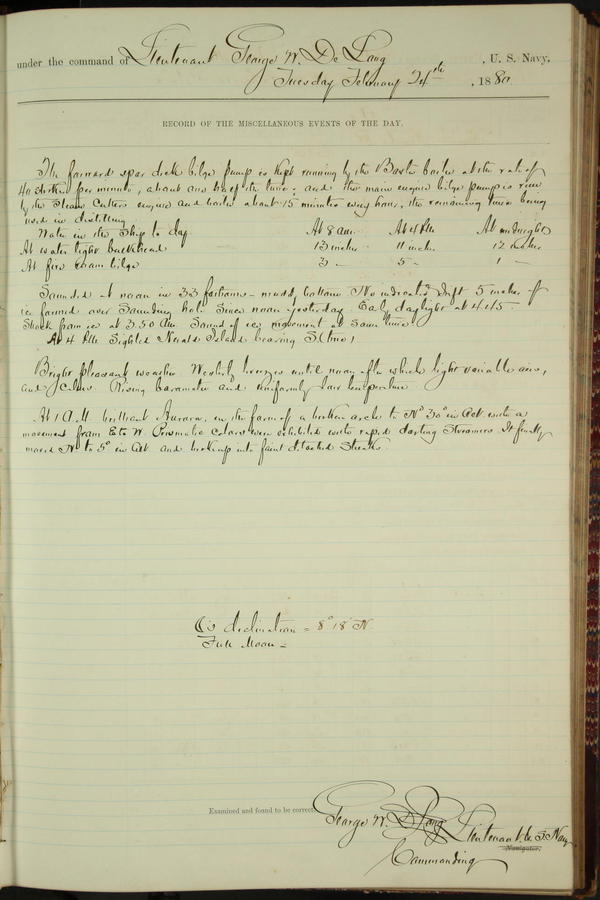 under the command of Lieutenant George W. De Long, U. S. Navy,
Tuesday February 24th, 1880
RECORD OF THE MISCELLANEOUS EVENTS OF THE DAY.
The forward spar deck bilge pump is kept running by the Baxter boiler at the rate of
40 strokes per minute, about one half the time; and the main engine bilge pump is run
by the Steam Cutters engine and boiler about 15 minutes every hour, the remaining time being
used in distilling.
Water in the Ship to day. At 8 a.m. At 4 P.M. At midnight
At water tight bulkhead 13 inches 11 inch. 12 inches
At fire room bilge 3 " 5 " 1 "
Sounded at noon in 33 fathoms - muddy bottom. No indicated drift. 5 inches of
ice formed over Sounding hole since noon yesterday. Early daylight at 4.15.
Shock from ice at 3.50 AM. Sound of ice movement at same time.
At 4 PM Sighted Herald Island bearing S (true)
Bright pleasant weather. Westerly breezes until noon after which light variable airs,
and Calms. Rising barometer and uniformly low temperature.
At 1 A.M. brilliant Aurora, in the form of a broken arch to N° 30° in alt. with a
movement from E to W. Prismatic Colors were exhibited with rapid darting Streamers. It finally
moved N to 5° in alt. and broke up into faint detached Streaks.
☾'s declination = 8° 18' N.
Full Moon =
Examined and found to be correct.
George W. De Long Lieutenant, U. S. Navy
Navigator.
Commanding